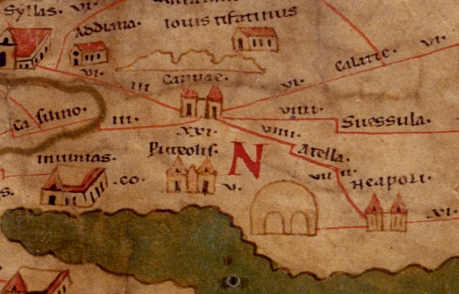 Syllas. VI.
Addiana.
Iovis tifatinus
VI.
Calatie. VI.
VI.
III
Capuae.
VI.
Ca silino.
III.
VIIII.
Suessula.
XXI.
VIIII.
Puteolis.
N
Atella.
CO.
V.
Neapoli.
XI.